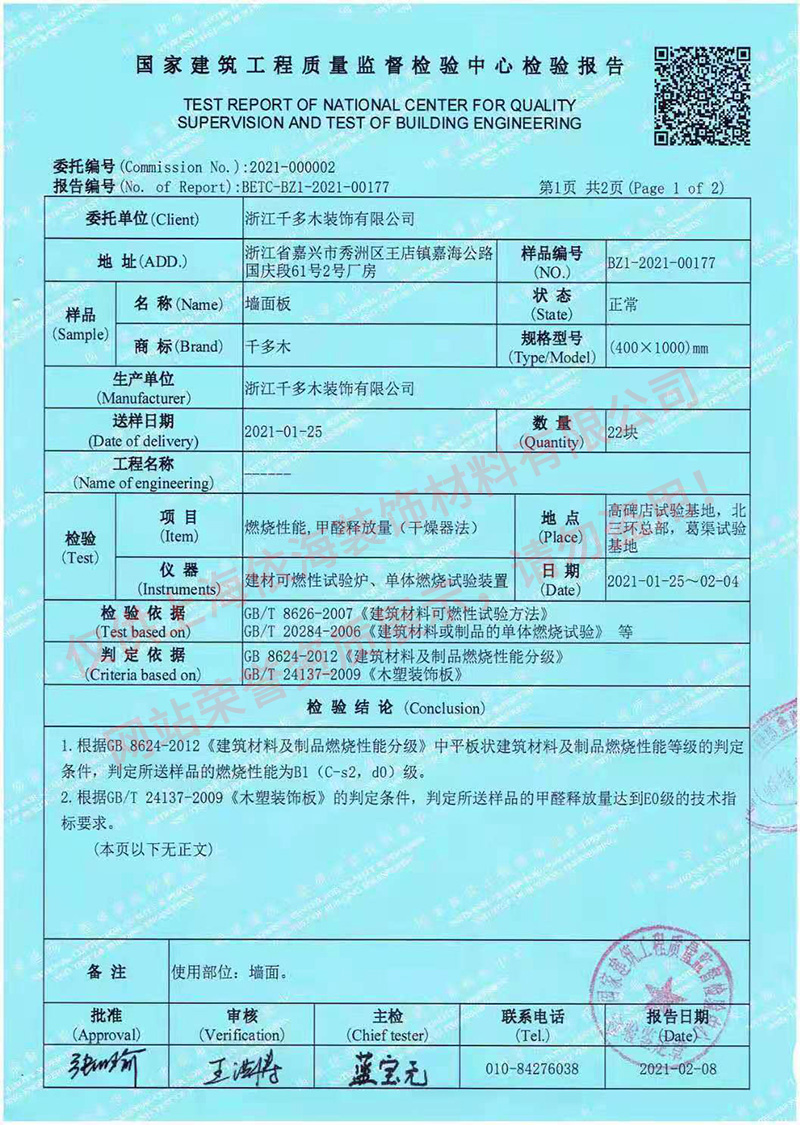 国家建筑工程质量监督检验中心检验报告
TEST REPORT OF NATIONAL CENTER FOR QUALITY
SUPERVISION AND TEST OF BUILDING ENGINEERING
委托编号(Commission No.):2021-000002
报告编号(No. of Report):BETC-BZ1-2021-00177 第1页 共2页(Page 1 of 2)
委托单位(Client) 浙江千多木装饰有限公司
地 址(ADD.) 浙江省嘉兴市秀洲区王店镇嘉海公路
国庆段61号2号厂房
样品编号
(NO.)
BZ1-2021-00177
样品
(Sample)
名 称(Name) 墙面板
状 态
(State)
正常
商 标(Brand) 千多木
规格型号
(Type/Model)
(400×1000)mm
生产单位
(Manufacturer)
浙江千多木装饰有限公司
送样日期
(Date of delivery)
2021-01-25
数 量
(Quantity)
22块
工程名称
(Name of engineering)
------
检验
(Test)
项 目
(Item)
燃烧性能,甲醛释放量（干燥器法）
地 点
(Place)
高碑店试验基地，北
三环总部，葛渠试验
基地
仪 器
(Instruments)
建材可燃性试验炉、单体燃烧试验装置
日 期
(Date)
2021-01-25～02-04
检 验 依 据
(Test based on)
GB/T 8626-2007《建筑材料可燃性试验方法》
GB/T 20284-2006《建筑材料或制品的单体燃烧试验》 等
判 定 依 据
(Criteria based on)
GB 8624-2012《建筑材料及制品燃烧性能分级》
GB/T 24137-2009《木塑装饰板》
检 验 结 论 (Conclusion)
1.根据GB 8624-2012《建筑材料及制品燃烧性能分级》中平板状建筑材料及制品燃烧性能等级的判定
条件，判定所送样品的燃烧性能为B1（C-s2，d0）级。
2.根据GB/T 24137-2009《木塑装饰板》的判定条件，判定所送样品的甲醛释放量达到E0级的技术指
标要求。
(本页以下无正文)
备 注 使用部位：墙面。
批准
(Approval)
审核
(Verification)
主检
(Chief tester)
联系电话
(Tel.)
报告日期
(Date)
王浩博
蓝宝元
010-84276038
2021-02-08
仅供上海依海装饰材料有限公司
网站荣誉资质展示，请勿盗用！
国家建筑工程质量监督检验中心